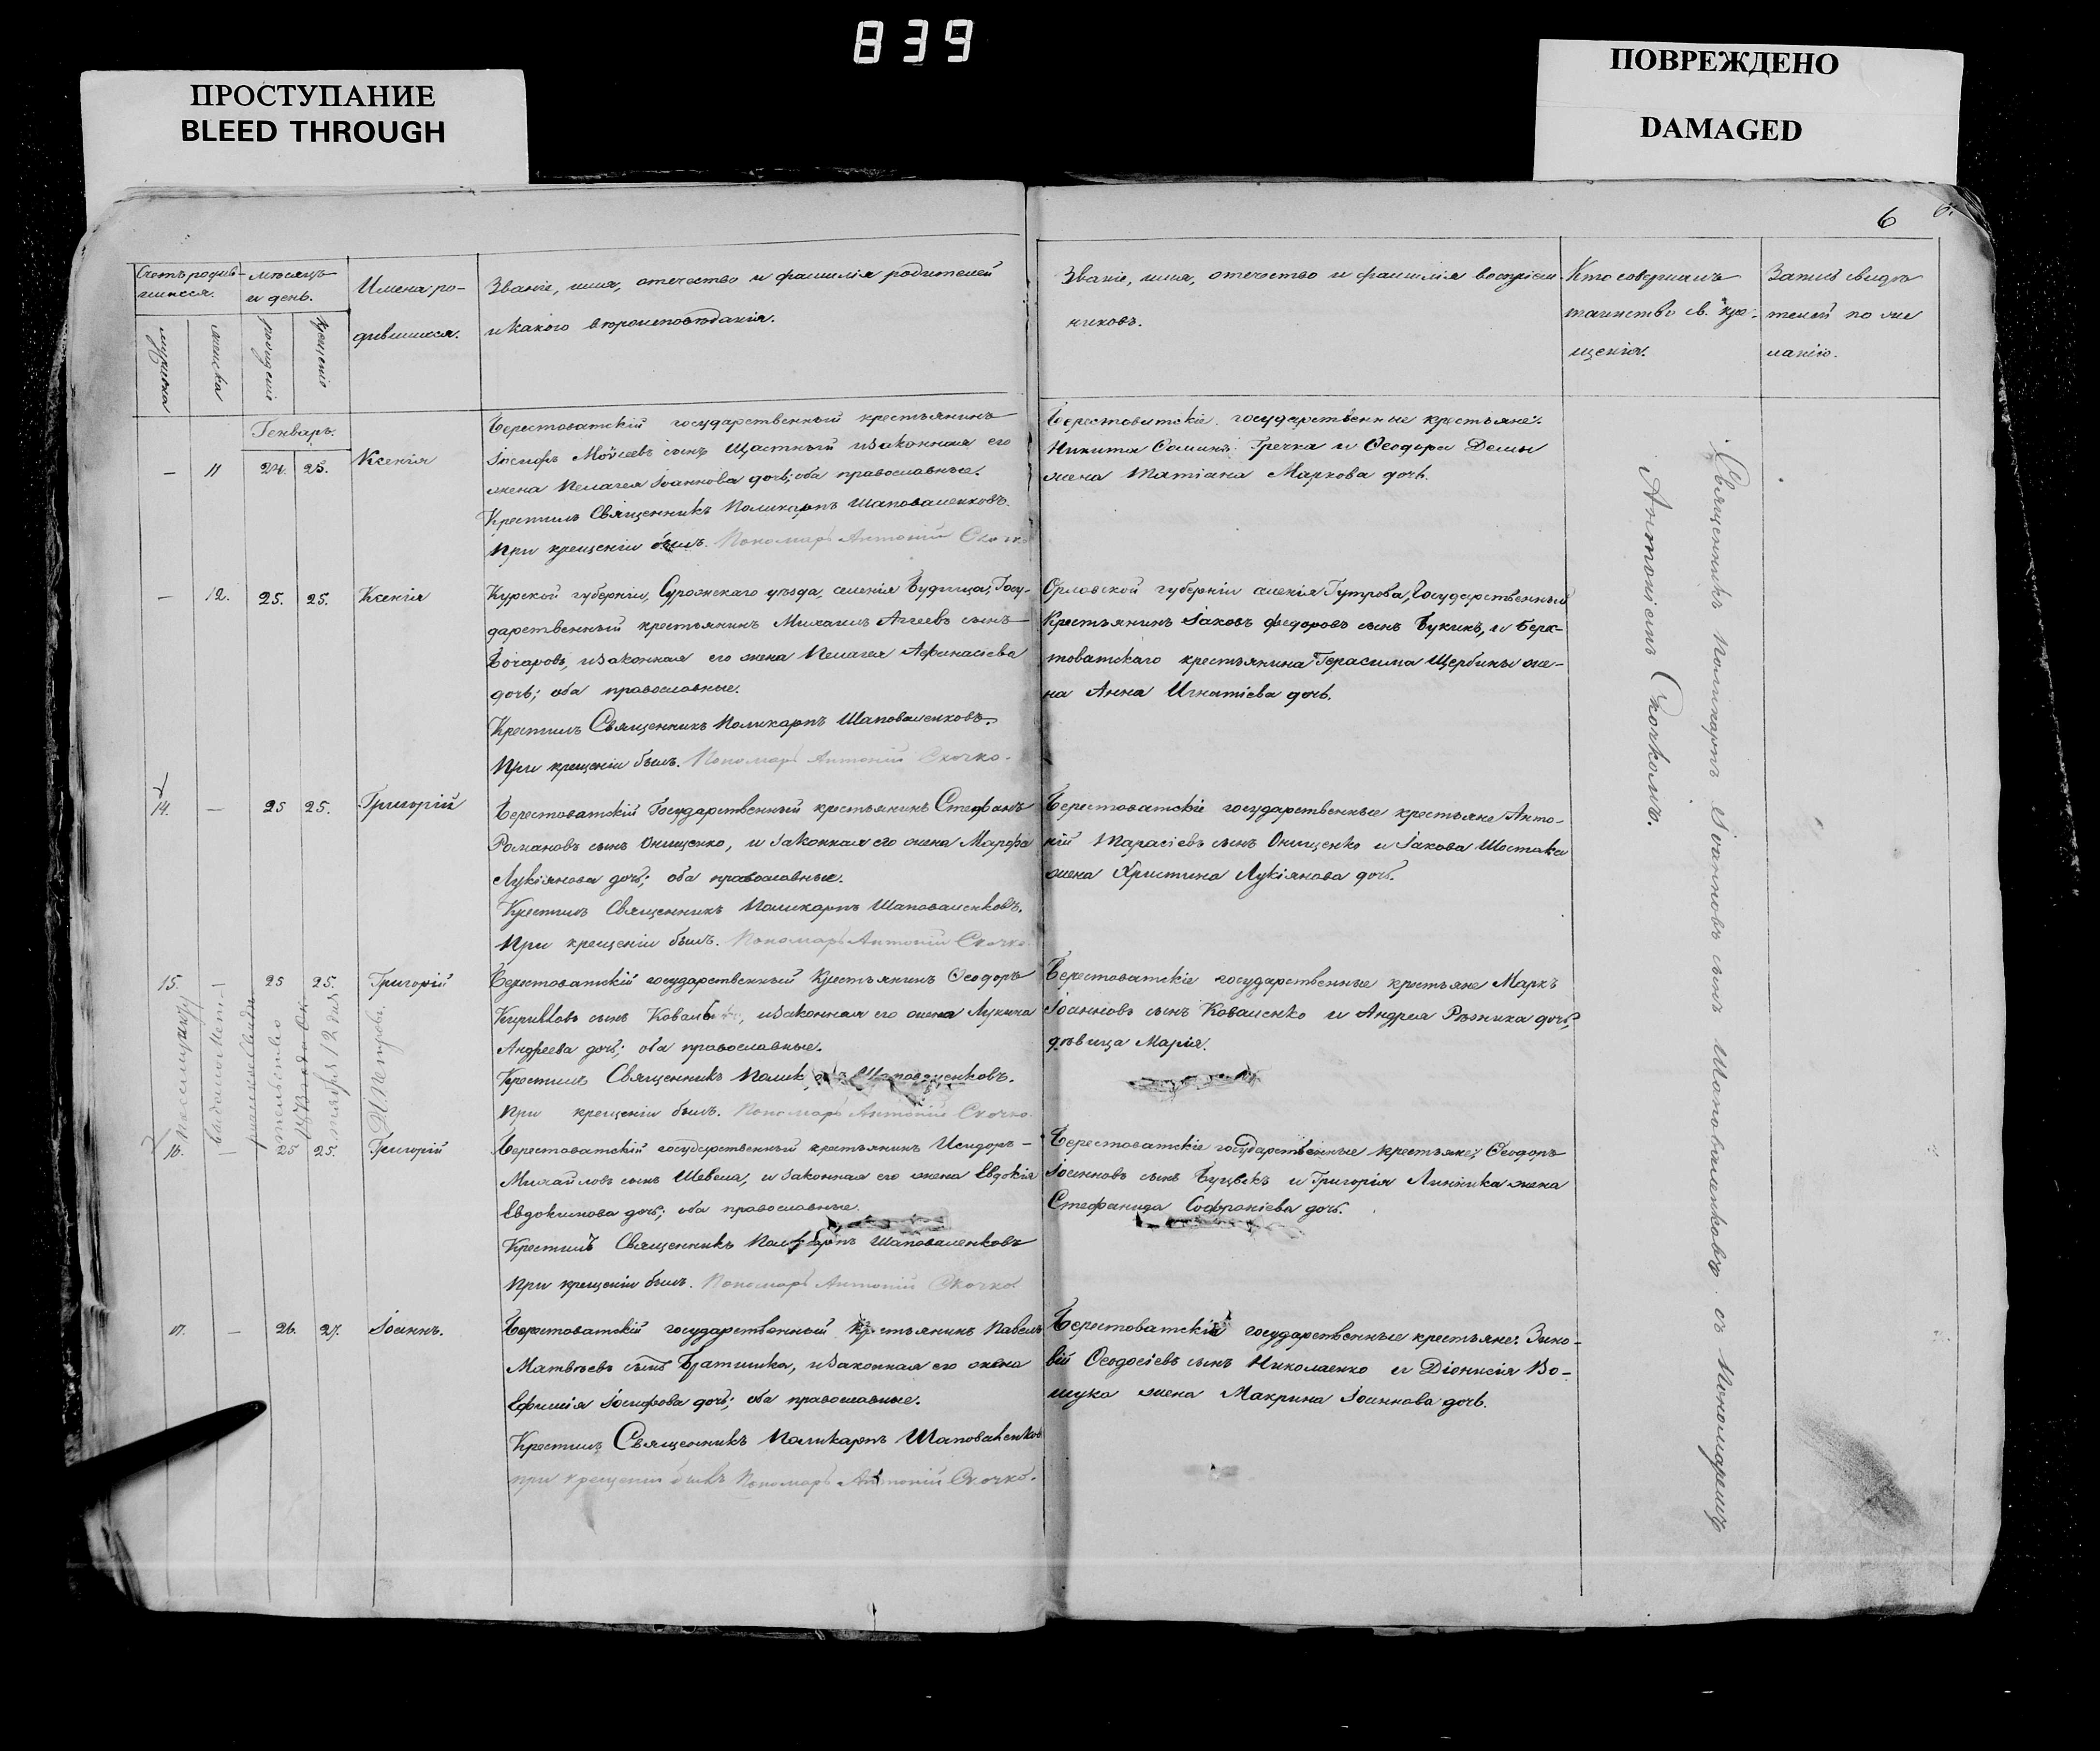 839
ПРОСТУПАНИЕ
BLEED THROUGH
ПОВРЕЖДЕНО
DAMAGED
6
Счетъ родив-
шихся.
мужеска
женска
мѣсяцъ
и день.
рожденiя
крещенiя
Имена ро-
дившихся.
Званiе, имя, отечество и фамилiя родителей
и какого вѣроисповѣданiя.
Званiе, имя, отечество и фамилiя воспрiем-
никовъ.
Кто совершалъ
таинство св. кре-
щенiя.
Запись свидѣ
телей по же
ланiю.
Генварь.
— 11 24. 25. Ксенiя
Берестоватскiй государственный крестьянинъ
Iосифъ Моѵсеевъ сынъ Щастный и законная его
жена Пелагея Iоаннова дочь; оба православные.
Крестилъ Священникъ Поликарпъ Шаповаленковъ.
При крещенiи былъ. Пономарь Антонiй Скочко
Берестоватскiе государственные крестьяне:
Никита Гречка и Ѳеодора Демы
жена Татiана Маркова дочь.
— 12. 25. 25. Ксенiя
Курской губернiи, Суражскаго уѣзда, селенiя Будища, Госу-
дарственный крестьянинъ Михаилъ Агеевъ сынъ
Бочаровъ, и законная его жена Пелагея Афанасiева
дочь; оба православные.
Крестилъ Священникъ Поликарпъ Шаповаленковъ.
При крещенiи былъ. Пономарь Антонiй Скочко.
Орловской губернiи селенiя Гутрова, Государственный
Крестьянинъ Iаковъ Федоровъ сынъ Букинъ, и Бере-
товатскаго крестьянина Герасима Щербины же-
на Анна Игнатiева дочь.
14. — 25 25. Григорiй
Берестоватскiй Государственный крестьянинъ Стефанъ
Романовъ сынъ Онищенко, и законная его жена Марфа
Лукiянова дочь; оба православные.
Крестилъ Священникъ Поликарпъ Шаповаленковъ.
При крещенiи былъ. Пономарь Антонiй Скочко.
Берестоватскiе государственные крестьяне Анто-
нiй Тарасiевъ сынъ Онищенко и Iакова Шостака
жена Христина Лукiянова дочь.
15. — 25 25. Григорiй
Берестоватскiй государственный Крестьянинъ Ѳеодоръ
Кирилловъ сынъ и законная его жена Лукина
Андреева дочь; оба православные.
Крестилъ Священникъ Шаповаленковъ.
При крещенiи былъ. Пономарь Антонiй Скочко.
Берестоватскiе государственные крестьяне Маркъ
Iоанновъ сынъ Коваленко и Андрея Рѣзника дочь,
дѣвица Марiя.
16. — 25 25. Григорiй
Берестоватскiй государственный крестьянинъ Исидоръ
Михайловъ сынъ Шевель, и законная его жена Евдокiя
Евдокимова дочь; оба православные.
Крестилъ Священникъ Поликарпъ Шаповаленковъ
При крещенiи былъ. Пономарь Антонiй Скочко.
Берестоватскiе государственные крестьяне; Ѳеодоръ
Iоанновъ сынъ и Григорiя Линника жена
Стефанида Софронiева дочь.
17. — 26. 27. Iоаннъ.
Берестоватскiй государственный крестьянинъ Павелъ
Матвѣевъ сынъ Братишка, и законная его жена
Ефимiя Iосифова дочь; оба православные.
Крестилъ Священникъ Поликарпъ Шаповаленков
при крещенiи былъ Пономарь Антонiй Скочко.
Берестоватскiе государственные крестьяне: Зино-
вiй Ѳеодосiевъ сынъ Николаенко и Дiонисiя Во-
жена Макрина Iоаннова дочь.
Священникъ Поликарпъ Iоанновъ сынъ Шаповаленковъ. съ Пономаремъ
Антонiемъ Скочкомъ.